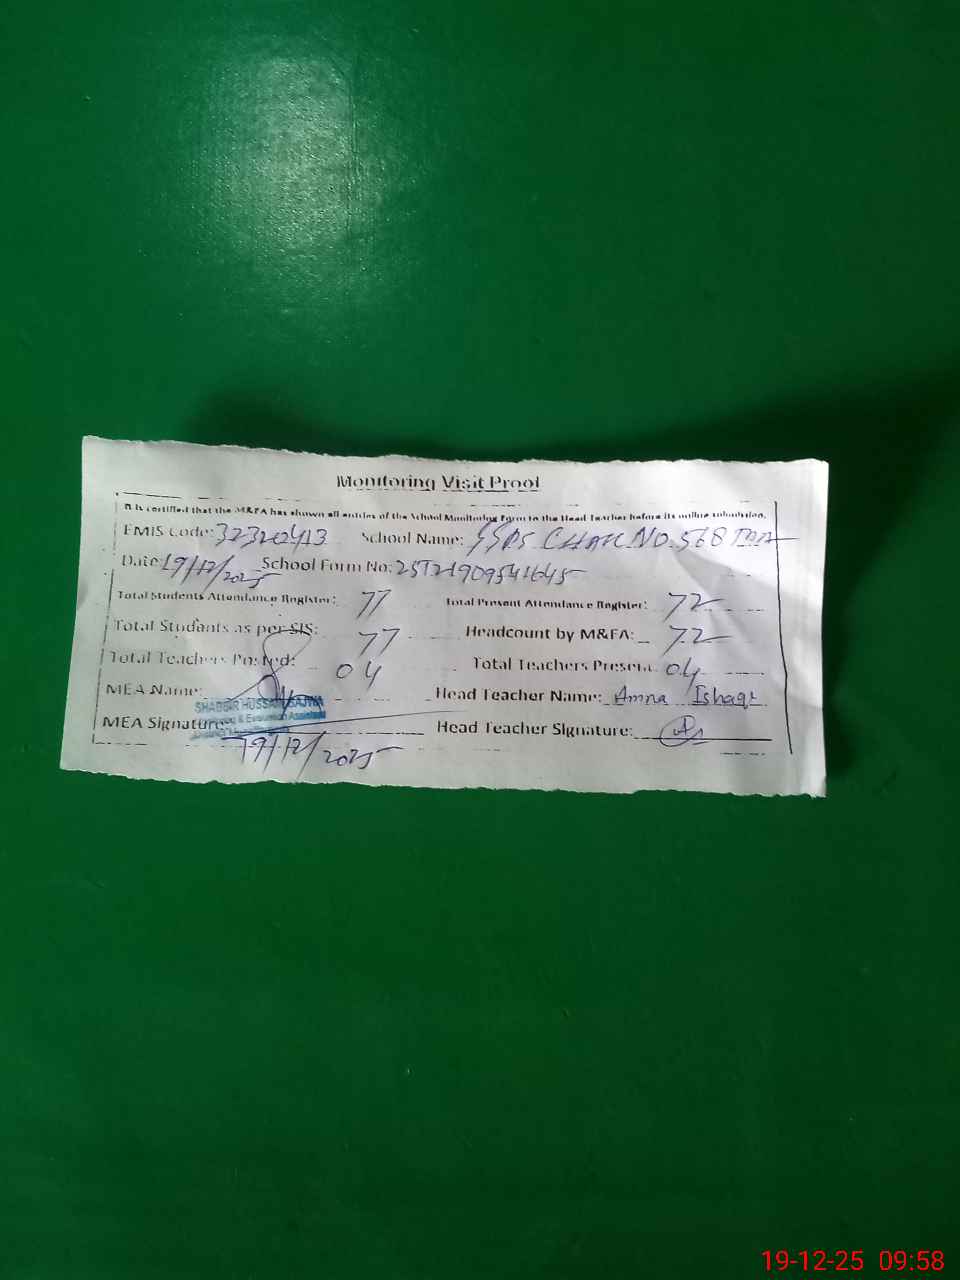 Monitoring Visit Proof
It is certified that the M&FA has shown all entries of the School Monitoring Form to the Head Teacher before its online submission.
EMIS Code: 32320413 School Name: CHAK NO. 568 TDA
Date: 19/12/2025 School Form No:
Total Students Attendance Register: 77 Total Present Attendance Register: 72
Total Students as per SIS: 77 Headcount by M&FA: 72
Total Teachers Posted: 04 Total Teachers Present: 04
MEA Name: Head Teacher Name: Amna Ishaq
SHABBIR HUSSAIN SAJWA
& Evaluation Assistant
MEA Signature: Head Teacher Signature:
19/12/2025
19-12-25 09:58